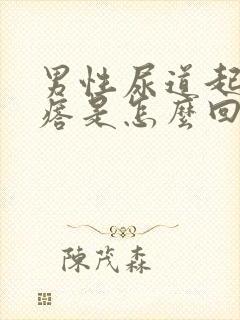 男性尿道起
痞是怎麼回
陳茂森